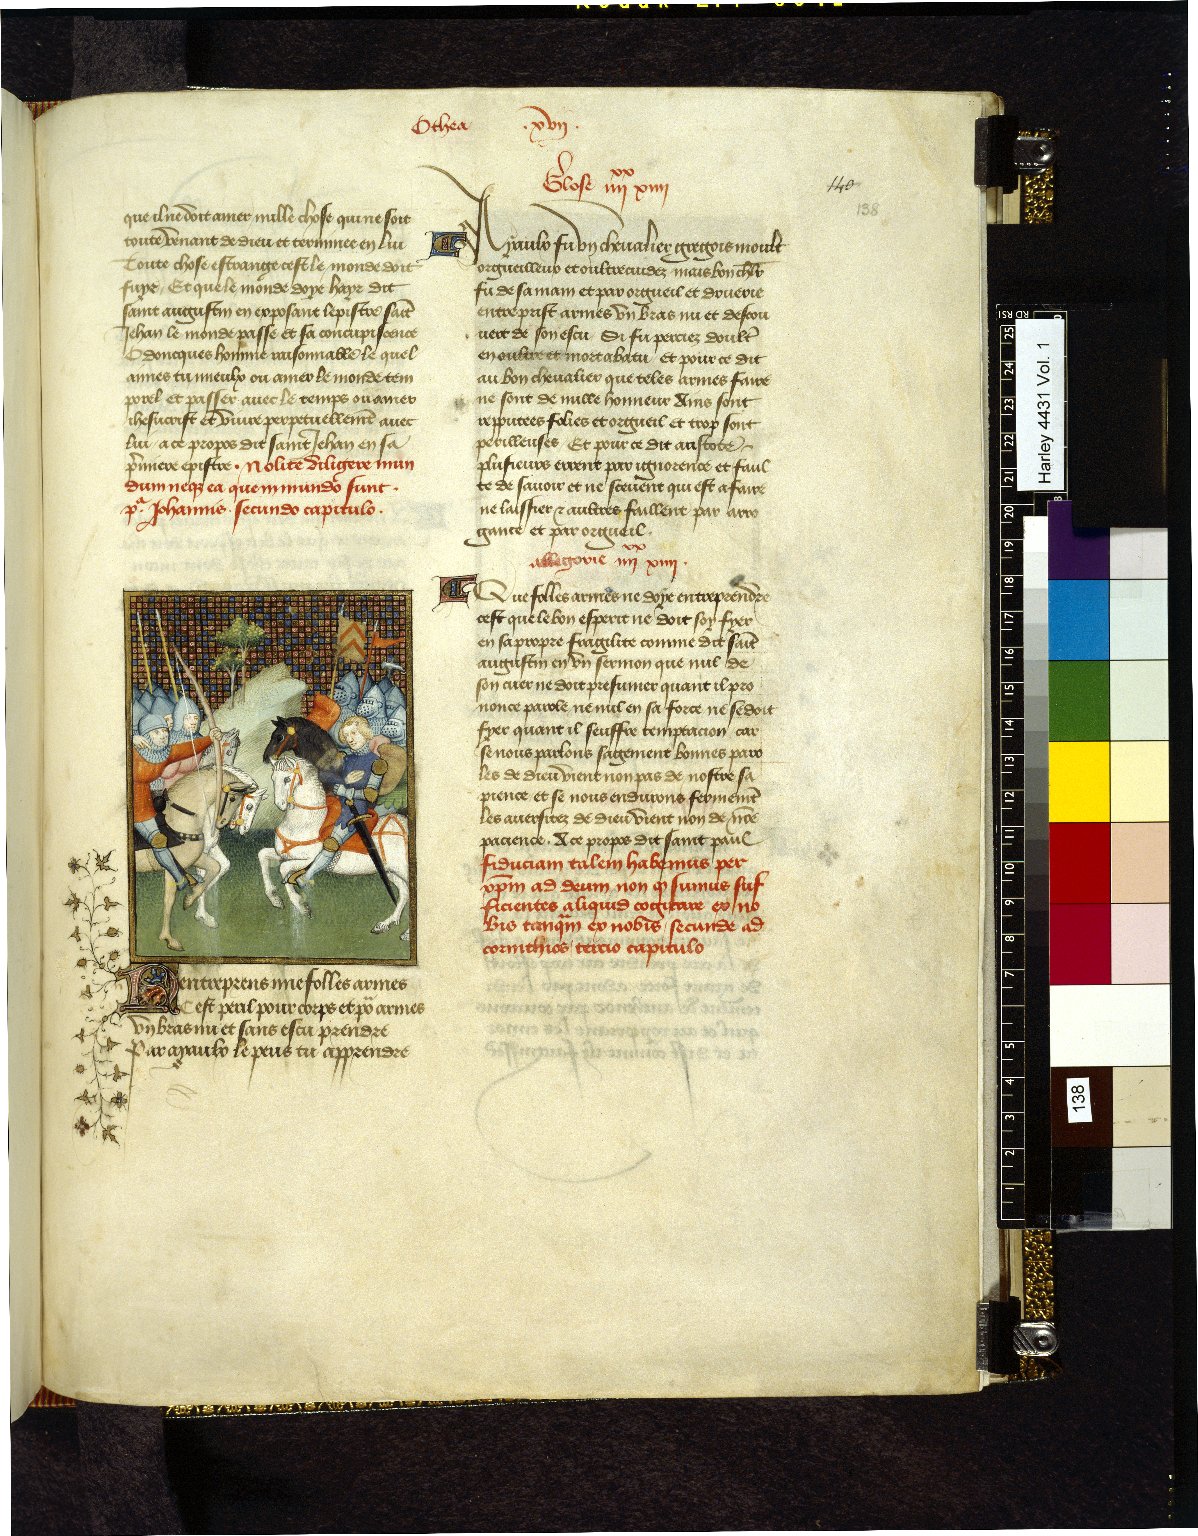 Othea .xvii.
que il ne doit amer nulle chose qui ne soit
toute venant de dieu et terminee en lui
Toute chose estrange cest le monde doit
fuyr. Et que le monde doye hayr dit
saint augustin en exposant lepistre saīt
Jehan le monde passe et sa concupiscence
O doncques homme raisonnable le quel
aimes tu mieulx ou amer le monde tem
porel et passer avec le temps ou amer
ihesucrist et vivre perpetuellemēt avec
lui a ce propos dit saint Jehan en sa
p̄miere epistre. Nolite diligere mun
dum neqz ea que in mundo sunt.
pᵃ Johannis. secundo capitulo.
Nentreprens mie folles armes
Cest peril pour corps et po᷑ armes
Un bras nu et sans escu prendre
Par ayaulx le peus tu apprendre
Glose iiii xx xiiii
Ayaulx fu un chevalier gregois moult
orgueilleux et oultrecuidez mais bon chlr̄
fu de sa main et par orgueil et
entreprist armes un bras nu et descou
vert de son escu Si fu perciez doult̄
en oultre et mort abatu et pour ce dit
au bon chevalier que teles armes faire
ne sont de nulle honneur Ains sont
reputees folies et orgueil et trop sont
perilleuses Et pour ce dit aristote
plusieurs errent par ignorence et faul
te de savoir et ne scevent qui est a faire
ne laissier ⁊ aultres faillent par arro
gance et par orgueil.
allegorie iiii xx xiiii.
Que folles armes ne doye entreprendre
cest que le bon esperit ne doit soy fyer
en sa propre fragilite comme dit saīt
augustin en un sermon que nul de
son cuer ne doit presumer quant il pro
nonce parole ne nul en sa force ne se doit
fyer quant il seuffre temptacion car
se nous parlons sagement bonnes paro
les de dieu vient non pas de nostre sa
pience et se nous endurons fermemēt
les aversitez de dieu vient non de nr̄e
pacience. A ce propos dit saint paul
fiduciam talem habemus per
xp̄m ad deum non q sumus suf
ficientes aliquid cogitare ex no
bis tanq̄m ex nobis secunde ad
corinthios tercio capitulo
140
138
Harley 4431 Vol. 1
138
25
24
23
22
21
20
19
18
17
16
15
14
13
12
11
10
9
8
7
5
4
3
2
1